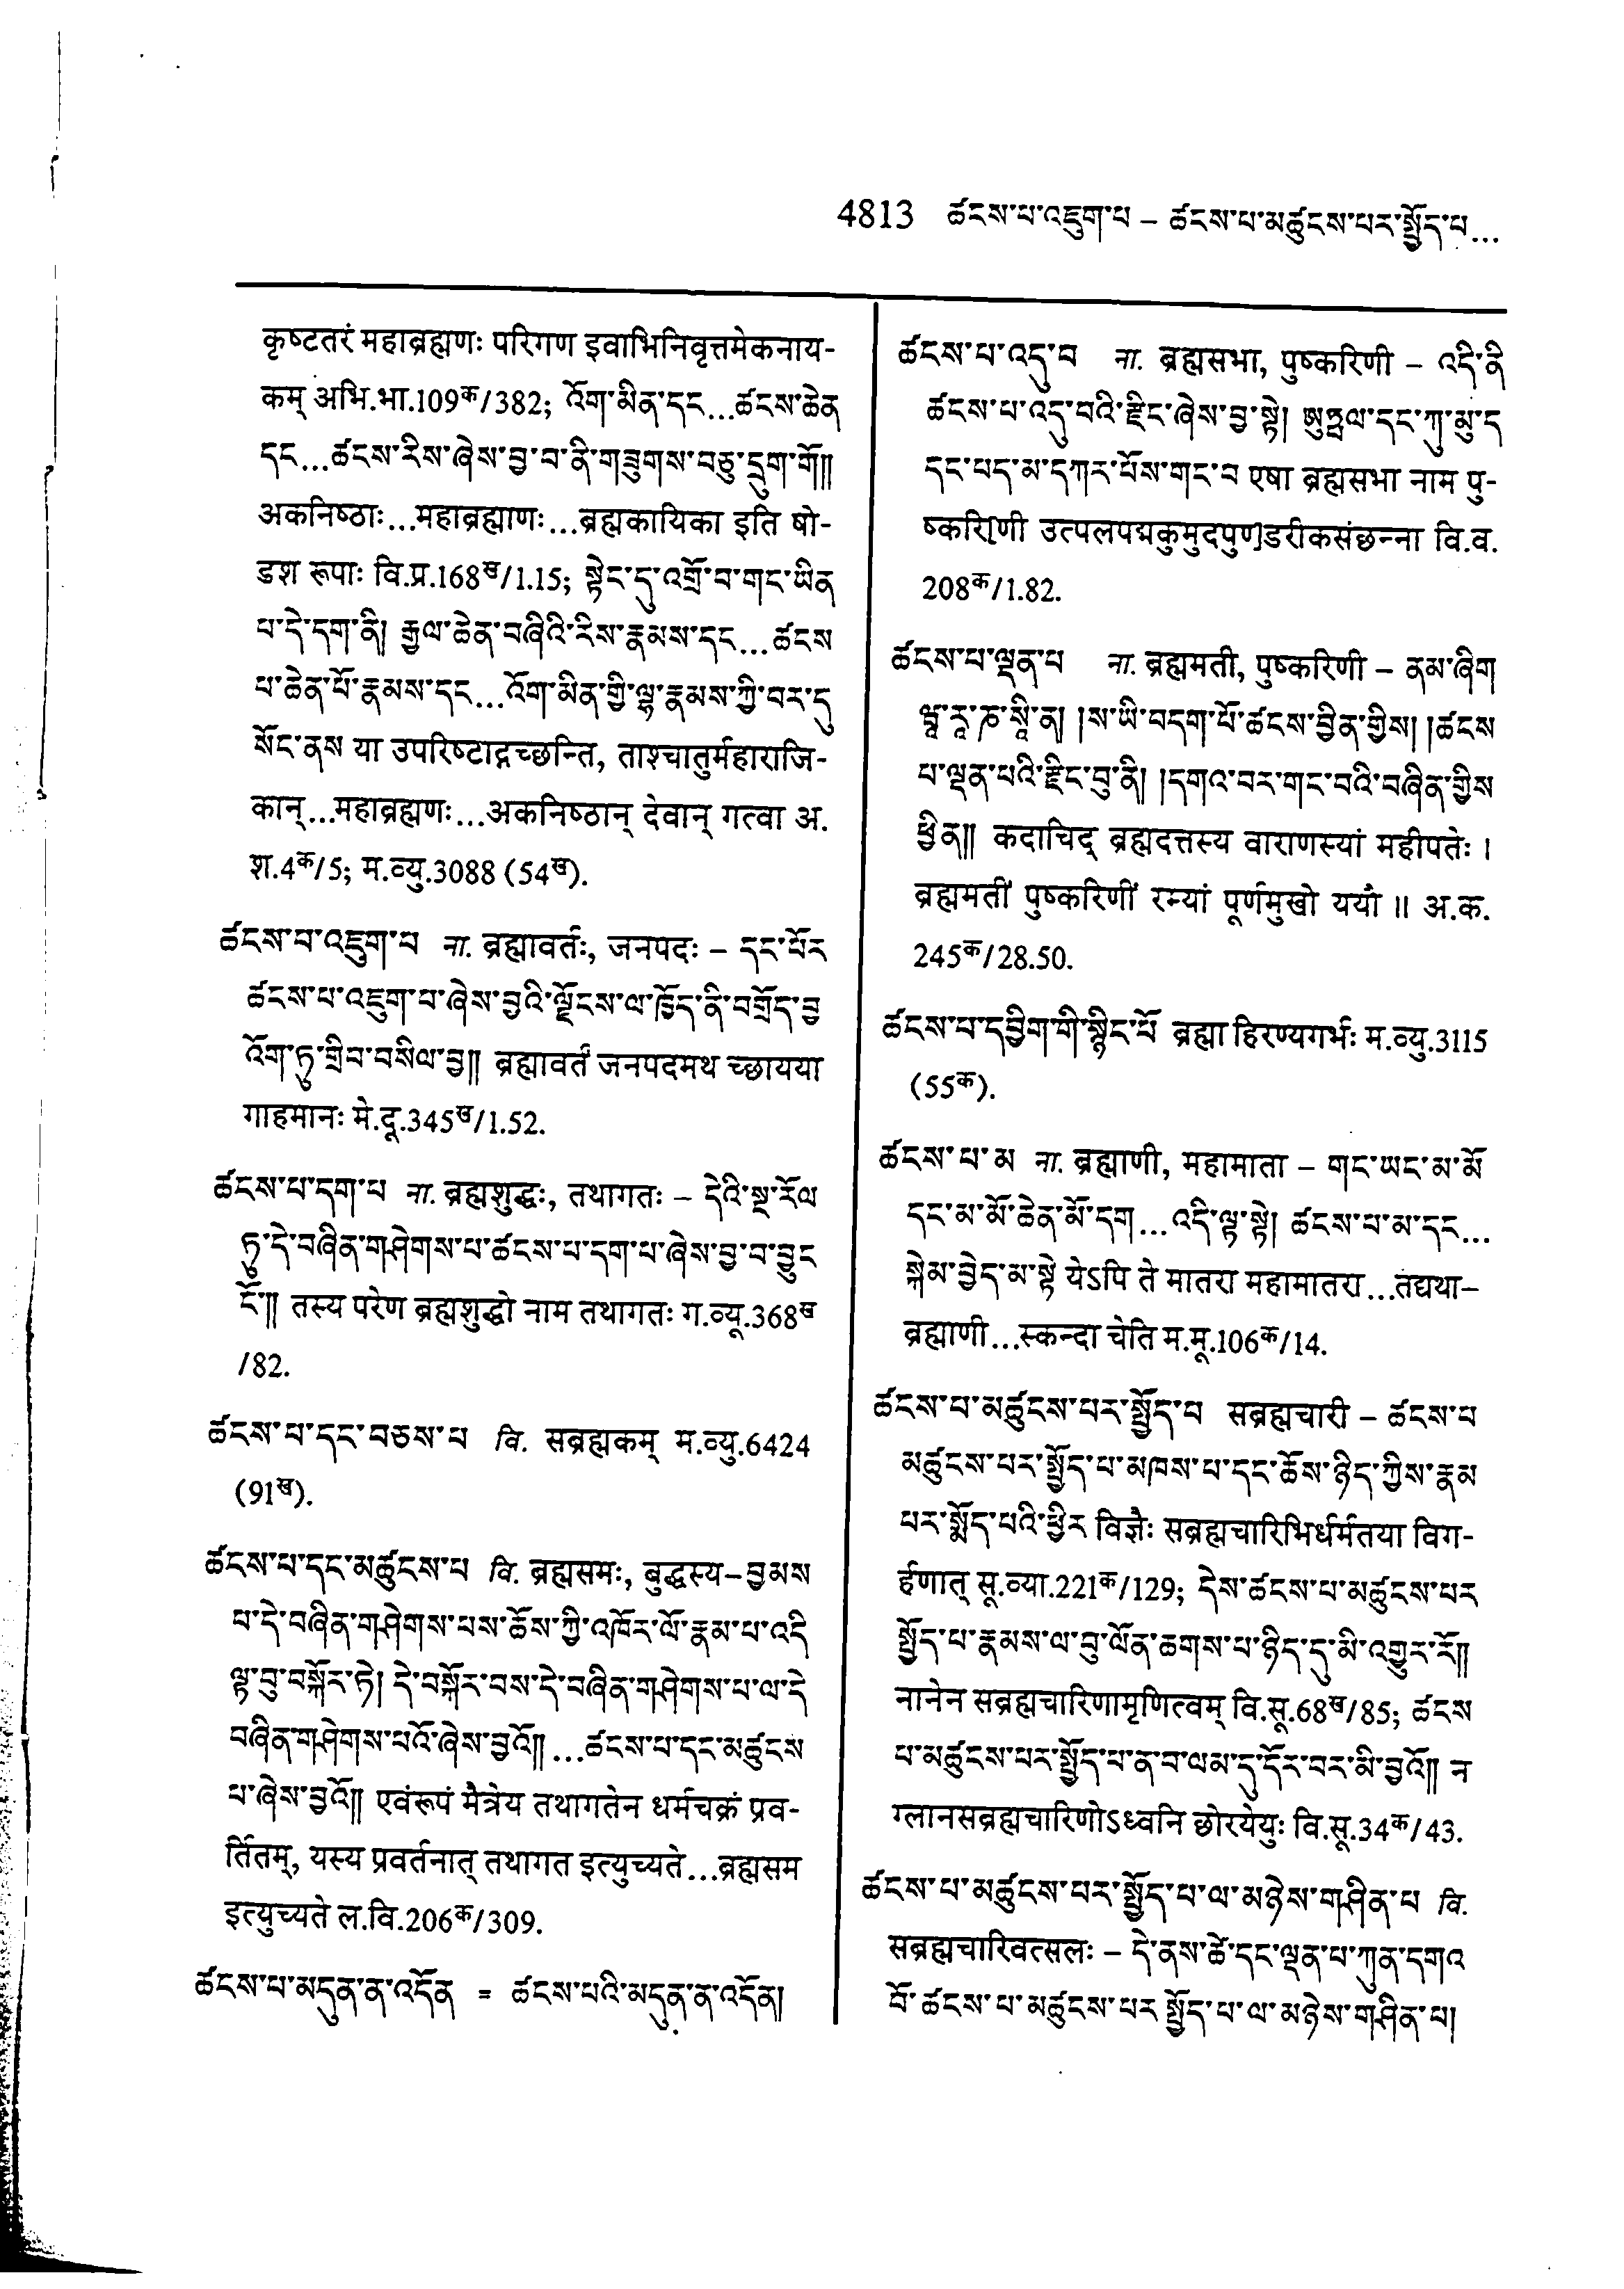 4813 ཚངས་པ་འཇུག་པ – ཚངས་པ་མཚུངས་པར་སྤྱོད་པ...
कृष्टतरं महाब्रह्मणः परिगण इवाभिनिवृत्तमेकनाय-
कम् अभि.भा.109क/382; འོག་མིན་དང...ཚངས་ཆེན
དང...ཚངས་རིས་ཞེས་བྱ་བ་ནི་གཟུགས་བཅུ་དྲུག་གོ།།
अकनिष्ठाः...महाब्रह्माणः...ब्रह्मकायिका इति षो-
डश रूपाः वि.प्र.168ख/1.15; སྟེང་དུ་འགྲོ་བ་གང་ཡིན
པ་དེ་དག་ནི། རྒྱལ་ཆེན་བཞིའི་རིས་རྣམས་དང...ཚངས
པ་ཆེན་པོ་རྣམས་དང...འོག་མིན་གྱི་ལྷ་རྣམས་ཀྱི་བར་དུ
སོང་ནས या उपरिष्टाद्गच्छन्ति, ताश्चातुर्महाराजि-
कान्...महाब्रह्मणः...अकनिष्ठान् देवान् गत्वा अ.
श.4क/5; म.व्यु.3088 (54ख).
ཚངས་པ་འཇུག་པ ना. ब्रह्मावर्तः, जनपदः – དང་པོར
ཚངས་པ་འཇུག་པ་ཞེས་བྱའི་ལྗོངས་ལ་ཁྱོད་ནི་བགྲོད་བྱ
འོག་ཏུ་གྲིབ་བསིལ་བྱ།། ब्रह्मावर्तं जनपदमथ च्छायया
गाहमानः मे.दू.345ख/1.52.
ཚངས་པ་དག་པ ना. ब्रह्मशुद्धः, तथागतः – དེའི་སྔ་རོལ
ཏུ་དེ་བཞིན་གཤེགས་པ་ཚངས་པ་དག་པ་ཞེས་བྱ་བ་བྱུང
ངོ་།། तस्य परेण ब्रह्मशुद्धो नाम तथागतः ग.व्यू.368ख
/82.
ཚངས་པ་དང་བཅས་པ वि. सब्रह्मकम् म.व्यु.6424
(91ख).
ཚངས་པ་དང་མཚུངས་པ वि. ब्रह्मसमः, बुद्धस्य–བྱམས
པ་དེ་བཞིན་གཤེགས་པས་ཆོས་ཀྱི་འཁོར་ལོ་རྣམ་པ་འདི
ལྟ་བུ་བསྐོར་ཏེ། དེ་བསྐོར་བས་དེ་བཞིན་གཤེགས་པ་ལ་དེ
བཞིན་གཤེགས་པའོ་ཞེས་བྱའོ།། ...ཚངས་པ་དང་མཚུངས
པ་ཞེས་བྱའོ།། एवंरूपं मैत्रेय तथागतेन धर्मचक्रं प्रव-
र्तितम्, यस्य प्रवर्तनात् तथागत इत्युच्यते...ब्रह्मसम
इत्युच्यते ल.वि.206क/309.
ཚངས་པ་མདུན་ན་འདོན = ཚངས་པའི་མདུན་ན་འདོན།
ཚངས་པ་འདུ་བ ना. ब्रह्मसभा, पुष्करिणी – འདི་ནི
ཚངས་པ་འདུ་བའི་རྫིང་ཞེས་བྱ་སྟེ། ཨུཏྤལ་དང་ཀུ་མུ་ད
དང་པད་མ་དཀར་པོས་གང་བ एषा ब्रह्मसभा नाम पु-
ष्करि[णी उत्पलपद्मकुमुदपुण]डरीकसंछन्ना वि.व.
208क/1.82.
ཚངས་པ་ལྡན་པ ना. ब्रह्ममती, पुष्करिणी – ནམ་ཞིག
ཝཱ་རཱ་ཎ་སཱི་ན། །ས་ཡི་བདག་པོ་ཚངས་བྱིན་གྱིས། །ཚངས
པ་ལྡན་པའི་རྫིང་བུ་ནི། །དགའ་བར་གང་བའི་བཞིན་གྱིས
ཕྱིན།། कदाचिद् ब्रह्मदत्तस्य वाराणस्यां महीपतेः ।
ब्रह्ममतीं पुष्करिणीं रम्यां पूर्णमुखो ययौ ॥ अ.क.
245क/28.50.
ཚངས་པ་དབྱིག་གི་སྙིང་པོ ब्रह्मा हिरण्यगर्भः म.व्यु.3115
(55क).
ཚངས་པ་མ ना. ब्रह्माणी, महामाता – གང་ཡང་མ་མོ
དང་མ་མོ་ཆེན་མོ་དག...འདི་ལྟ་སྟེ། ཚངས་པ་མ་དང...
སྐེམ་བྱེད་མ་སྟེ येऽपि ते मातरा महामातरा...तद्यथा–
ब्रह्माणी...स्कन्दा चेति म.मू.106क/14.
ཚངས་པ་མཚུངས་པར་སྤྱོད་པ सब्रह्मचारी – ཚངས་པ
མཚུངས་པར་སྤྱོད་པ་མཁས་པ་དང་ཆོས་ཉིད་ཀྱིས་རྣམ
པར་སྨོད་པའི་ཕྱིར विज्ञैः सब्रह्मचारिभिर्धर्मतया विग-
र्हणात् सू.व्या.221क/129; དེས་ཚངས་པ་མཚུངས་པར
སྤྱོད་པ་རྣམས་ལ་བུ་ལོན་ཆགས་པ་ཉིད་དུ་མི་འགྱུར་རོ།།
नानेन सब्रह्मचारिणामृणित्वम् वि.सू.68ख/85; ཚངས
པ་མཚུངས་པར་སྤྱོད་པ་ན་བ་ལམ་དུ་དོར་བར་མི་བྱའོ།། न
ग्लानसब्रह्मचारिणोऽध्वनि छोरयेयुः वि.सू.34क/43.
ཚངས་པ་མཚུངས་པར་སྤྱོད་པ་ལ་མཉེས་གཤིན་པ वि.
सब्रह्मचारिवत्सलः – དེ་ནས་ཚེ་དང་ལྡན་པ་ཀུན་དགའ
བོ་ཚངས་པ་མཚུངས་པར་སྤྱོད་པ་ལ་མཉེས་གཤིན་པ།